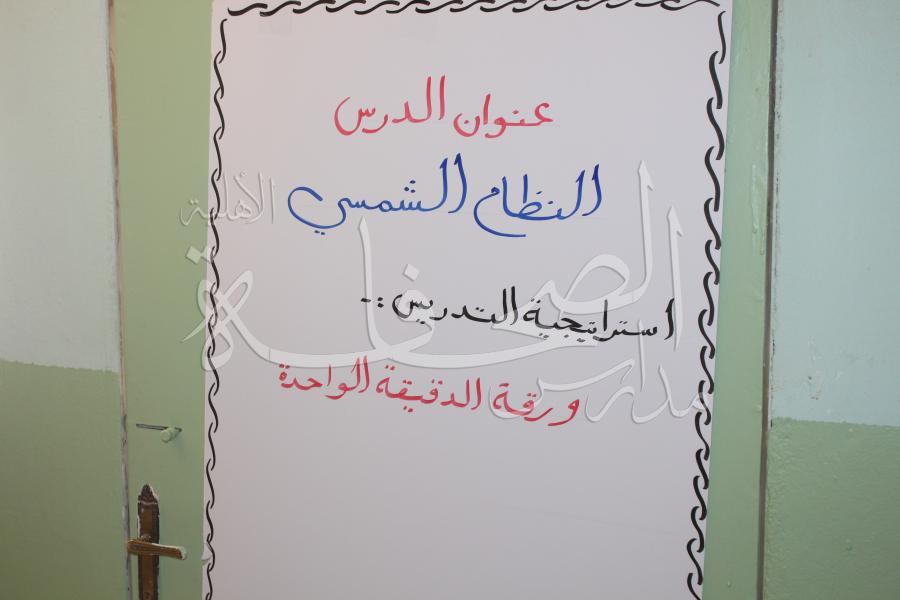 عنوان الدرس
النظام الشمسي
استراتيجية التدريس :-
ورقة الدقيقة الواحدة
مدارس
الصحافة
الأهلية